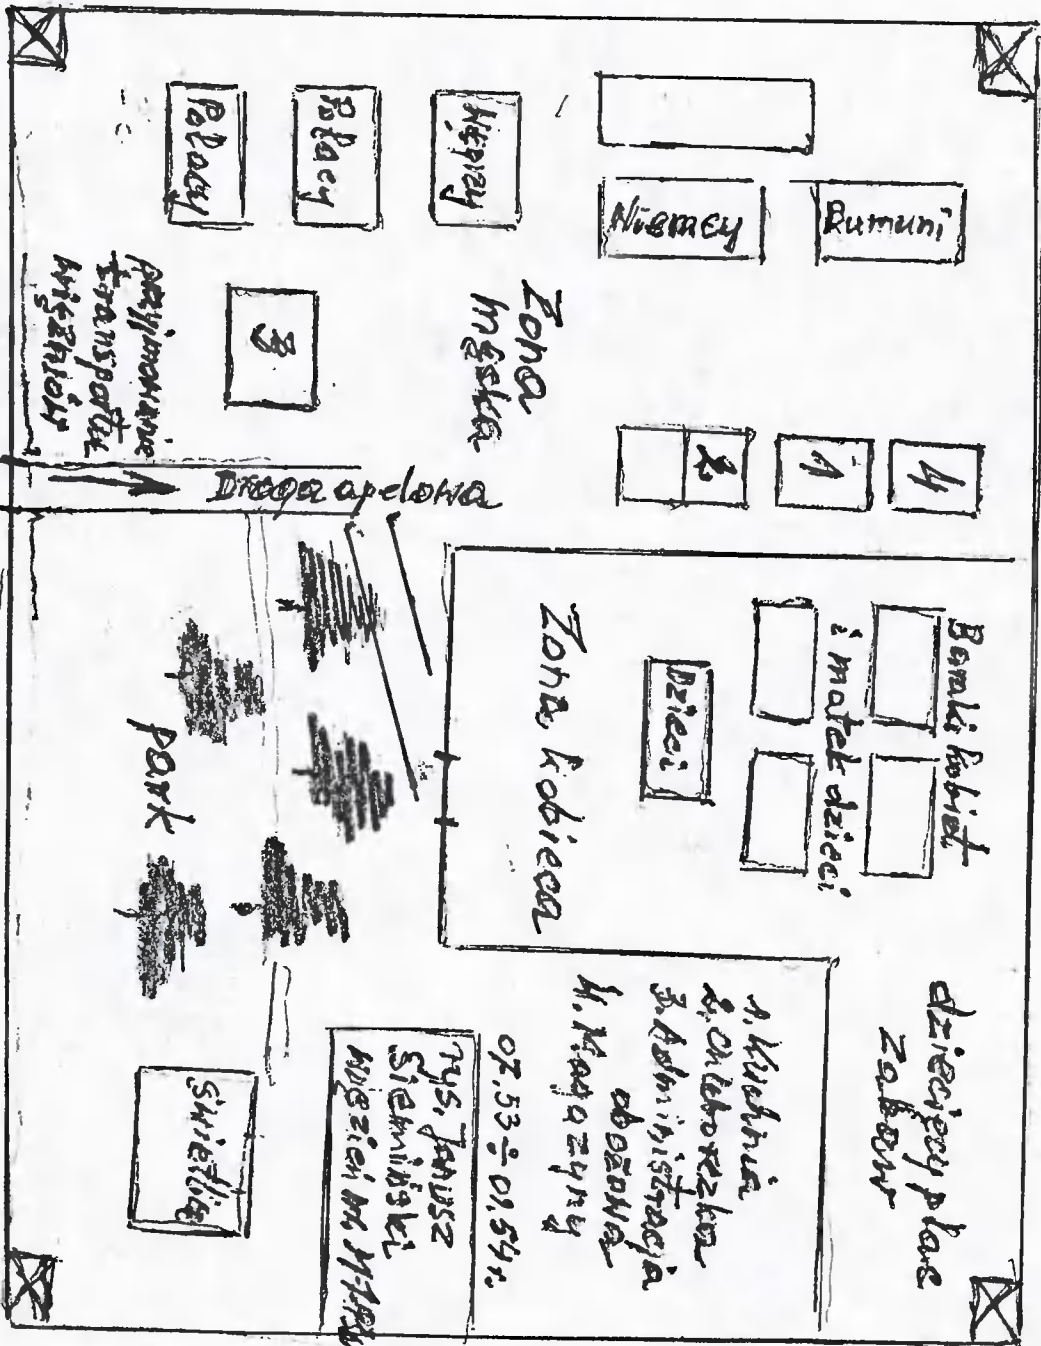 Polacy
Polacy
Węgrzy
Niemcy
Rumuni
przyjmowanie
transportu
więźniów
3
Zona
męska
2.
1
4
Droga apelowa
Baraki kobiet
i matek dzieci
Dzieci
Zona, kobieca
Park
dziecięcy plac
Zabaw
1. Kuchnia
2. Chleborezka
3. Administracja
obozowa
4. Magazyny
07.53÷01.54r.
rys. Janusz
Siemiński
więzień
Świetlica